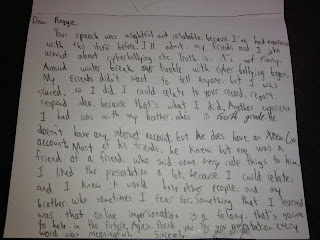 Dear Reggie,
Your speech was insightful and relatable, because I've had experience
with this stuff before. I'll admit, my friends and I joke
around about cyberbullying etc. Truth is, it's not funny.
Around winter break our trouble with cyber bullying began.
My friends didn't want to tell anyone, but I was
scared, so I did. I could relate to your record, report,
respond idea, because that's what I did. Another experience
I had was with my brother, who's in fourth grade. He
doesn't have any internet account, but he does have an XBox Live
account. Most of his friends, he knew, but one was a
friend of a friend, who said some very rude things to him.
I liked the presentation a lot, because I could relate,
and I knew it would help other people, and my
brother, who sometimes I fear for. Something that I learned
was that online impersonation is a felony, that's going
to help in the future. Again thank you for you presentation, every
word was meaningful. Sincerely,